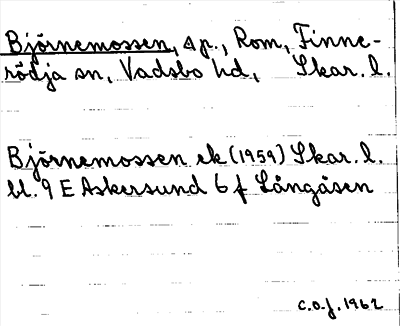 Björnemossen, äp., Rom, Finne-
rödja sn, Vadsbo hd, Skar. l.
Björnemossen ek (1959) Skar. l.
bl. 9 E Askersund 6 f Långåsen
C.O.J. 1962